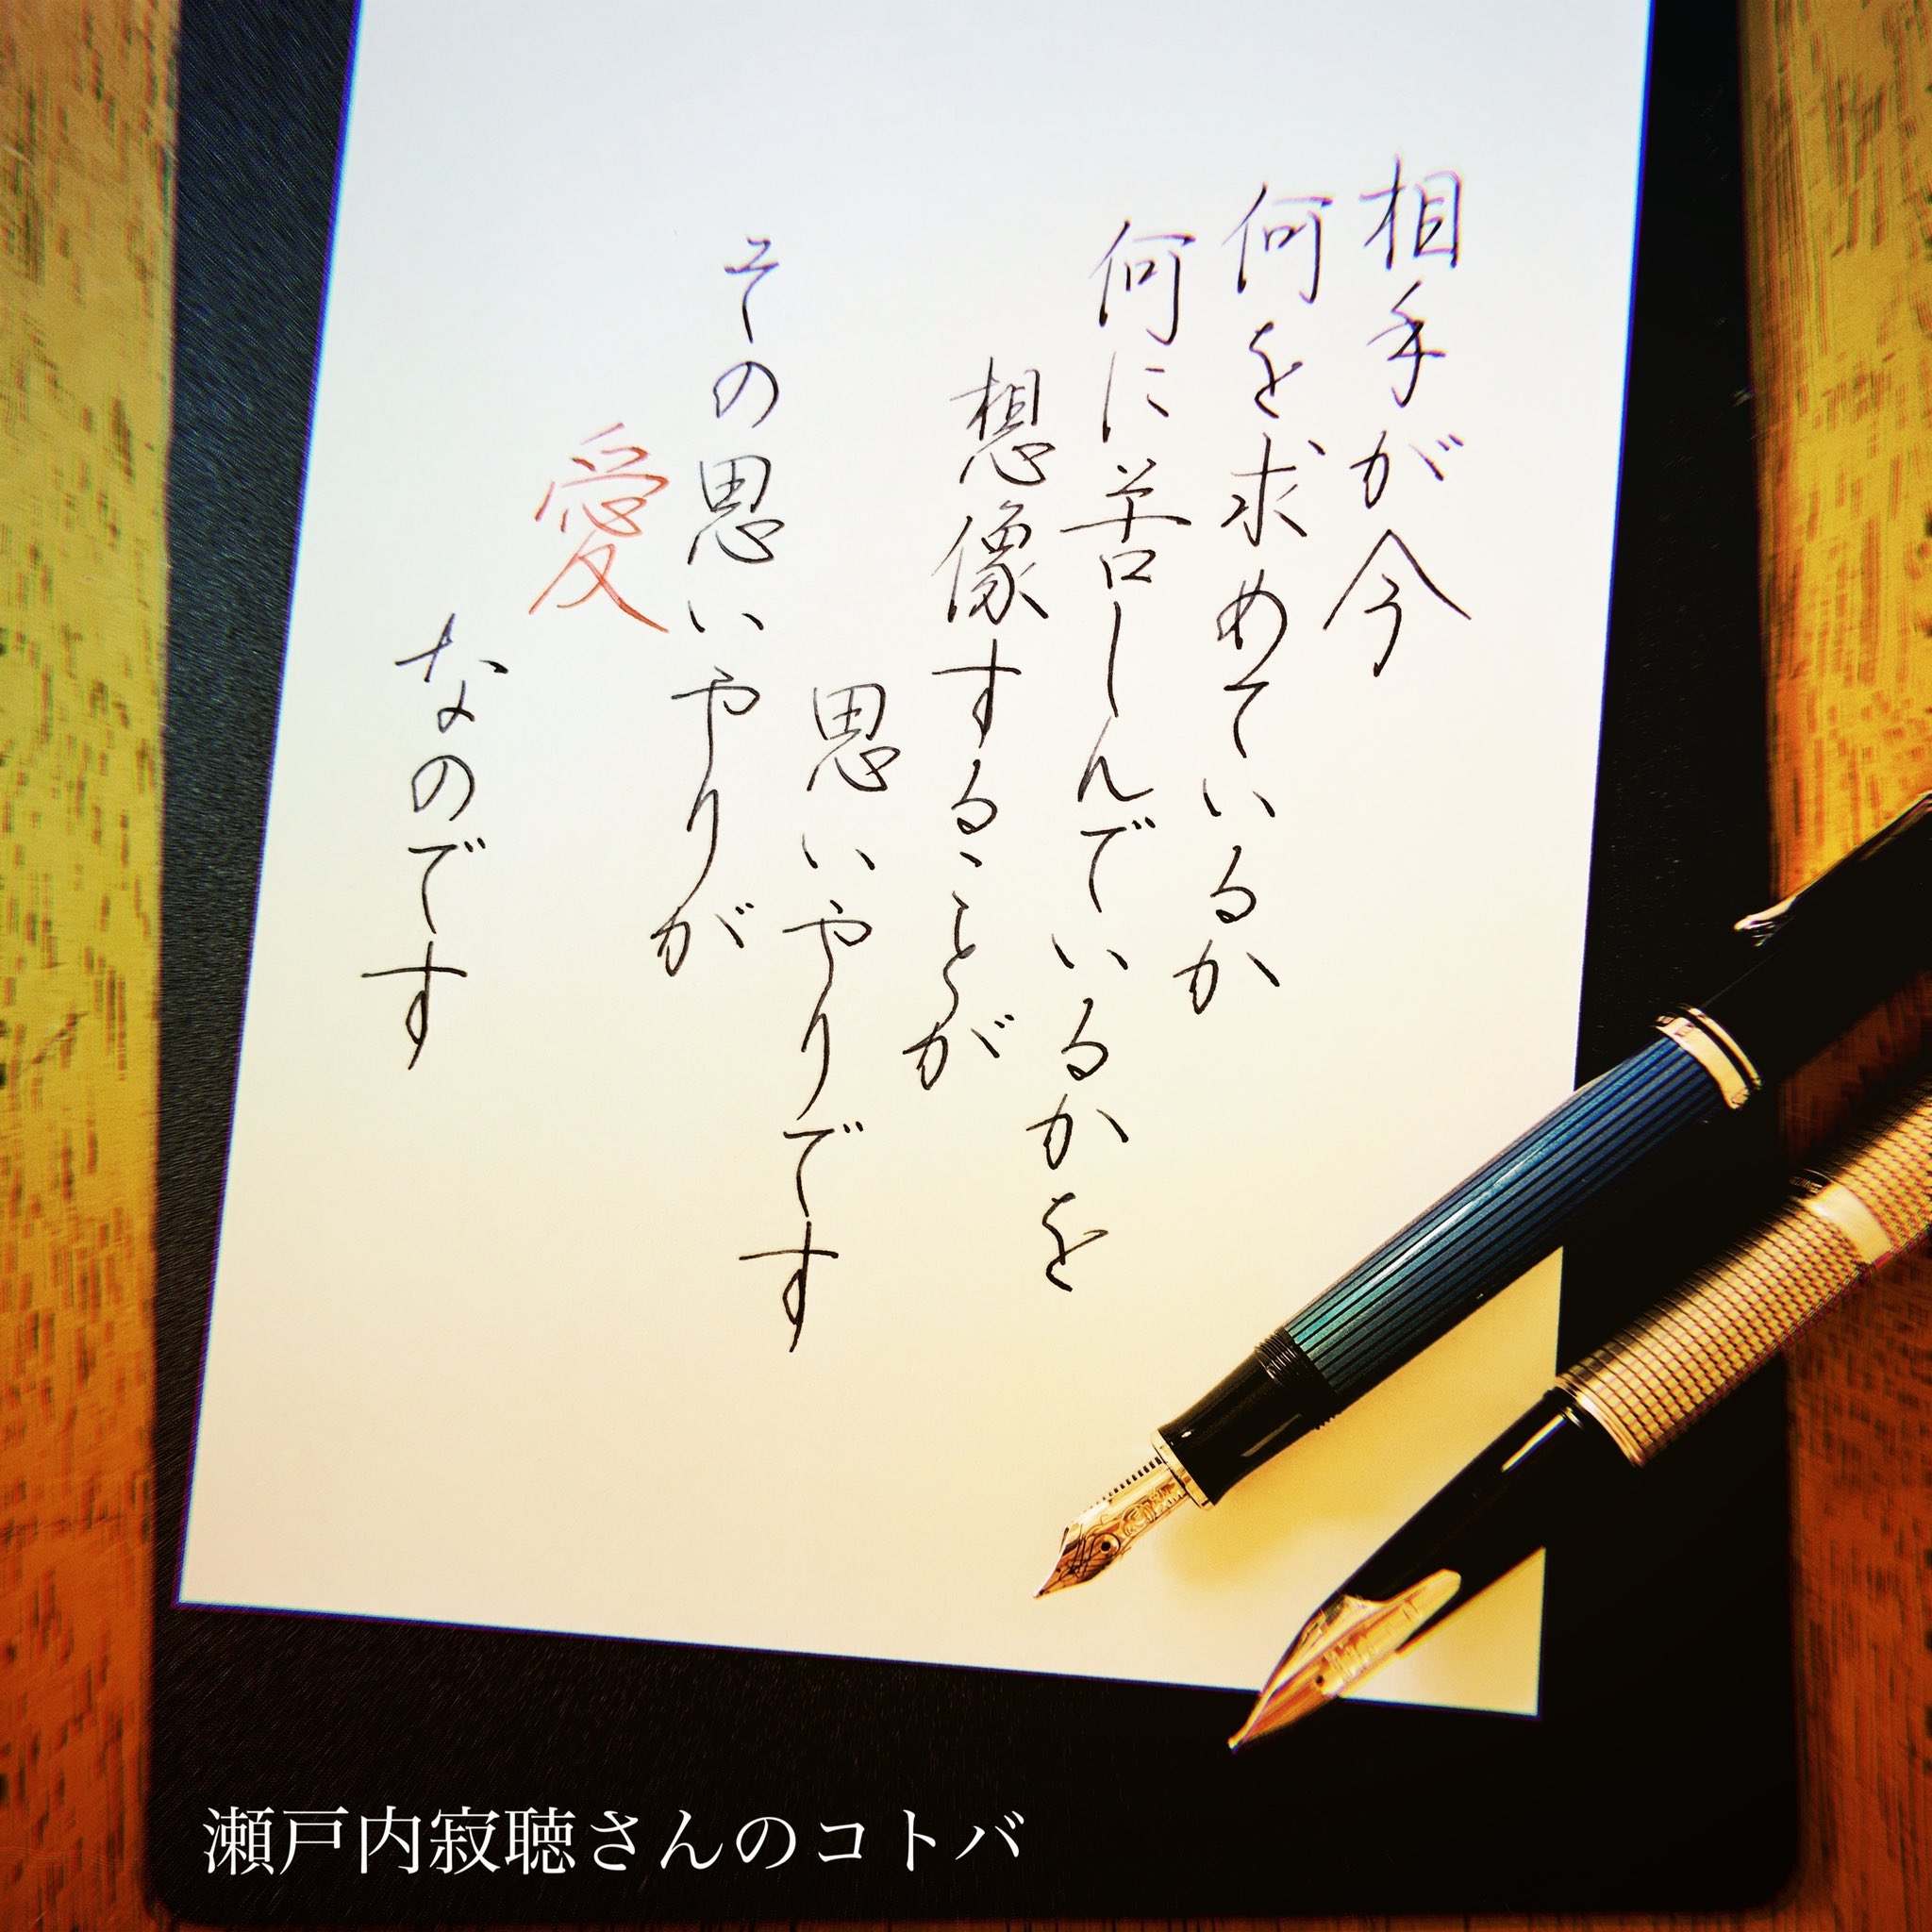 相手が今
何を求めているか
何に苦しんでいるかを
想像することが
思いやりです
その思いやりが
愛
なのです
瀬戸内寂聴さんのコトバ